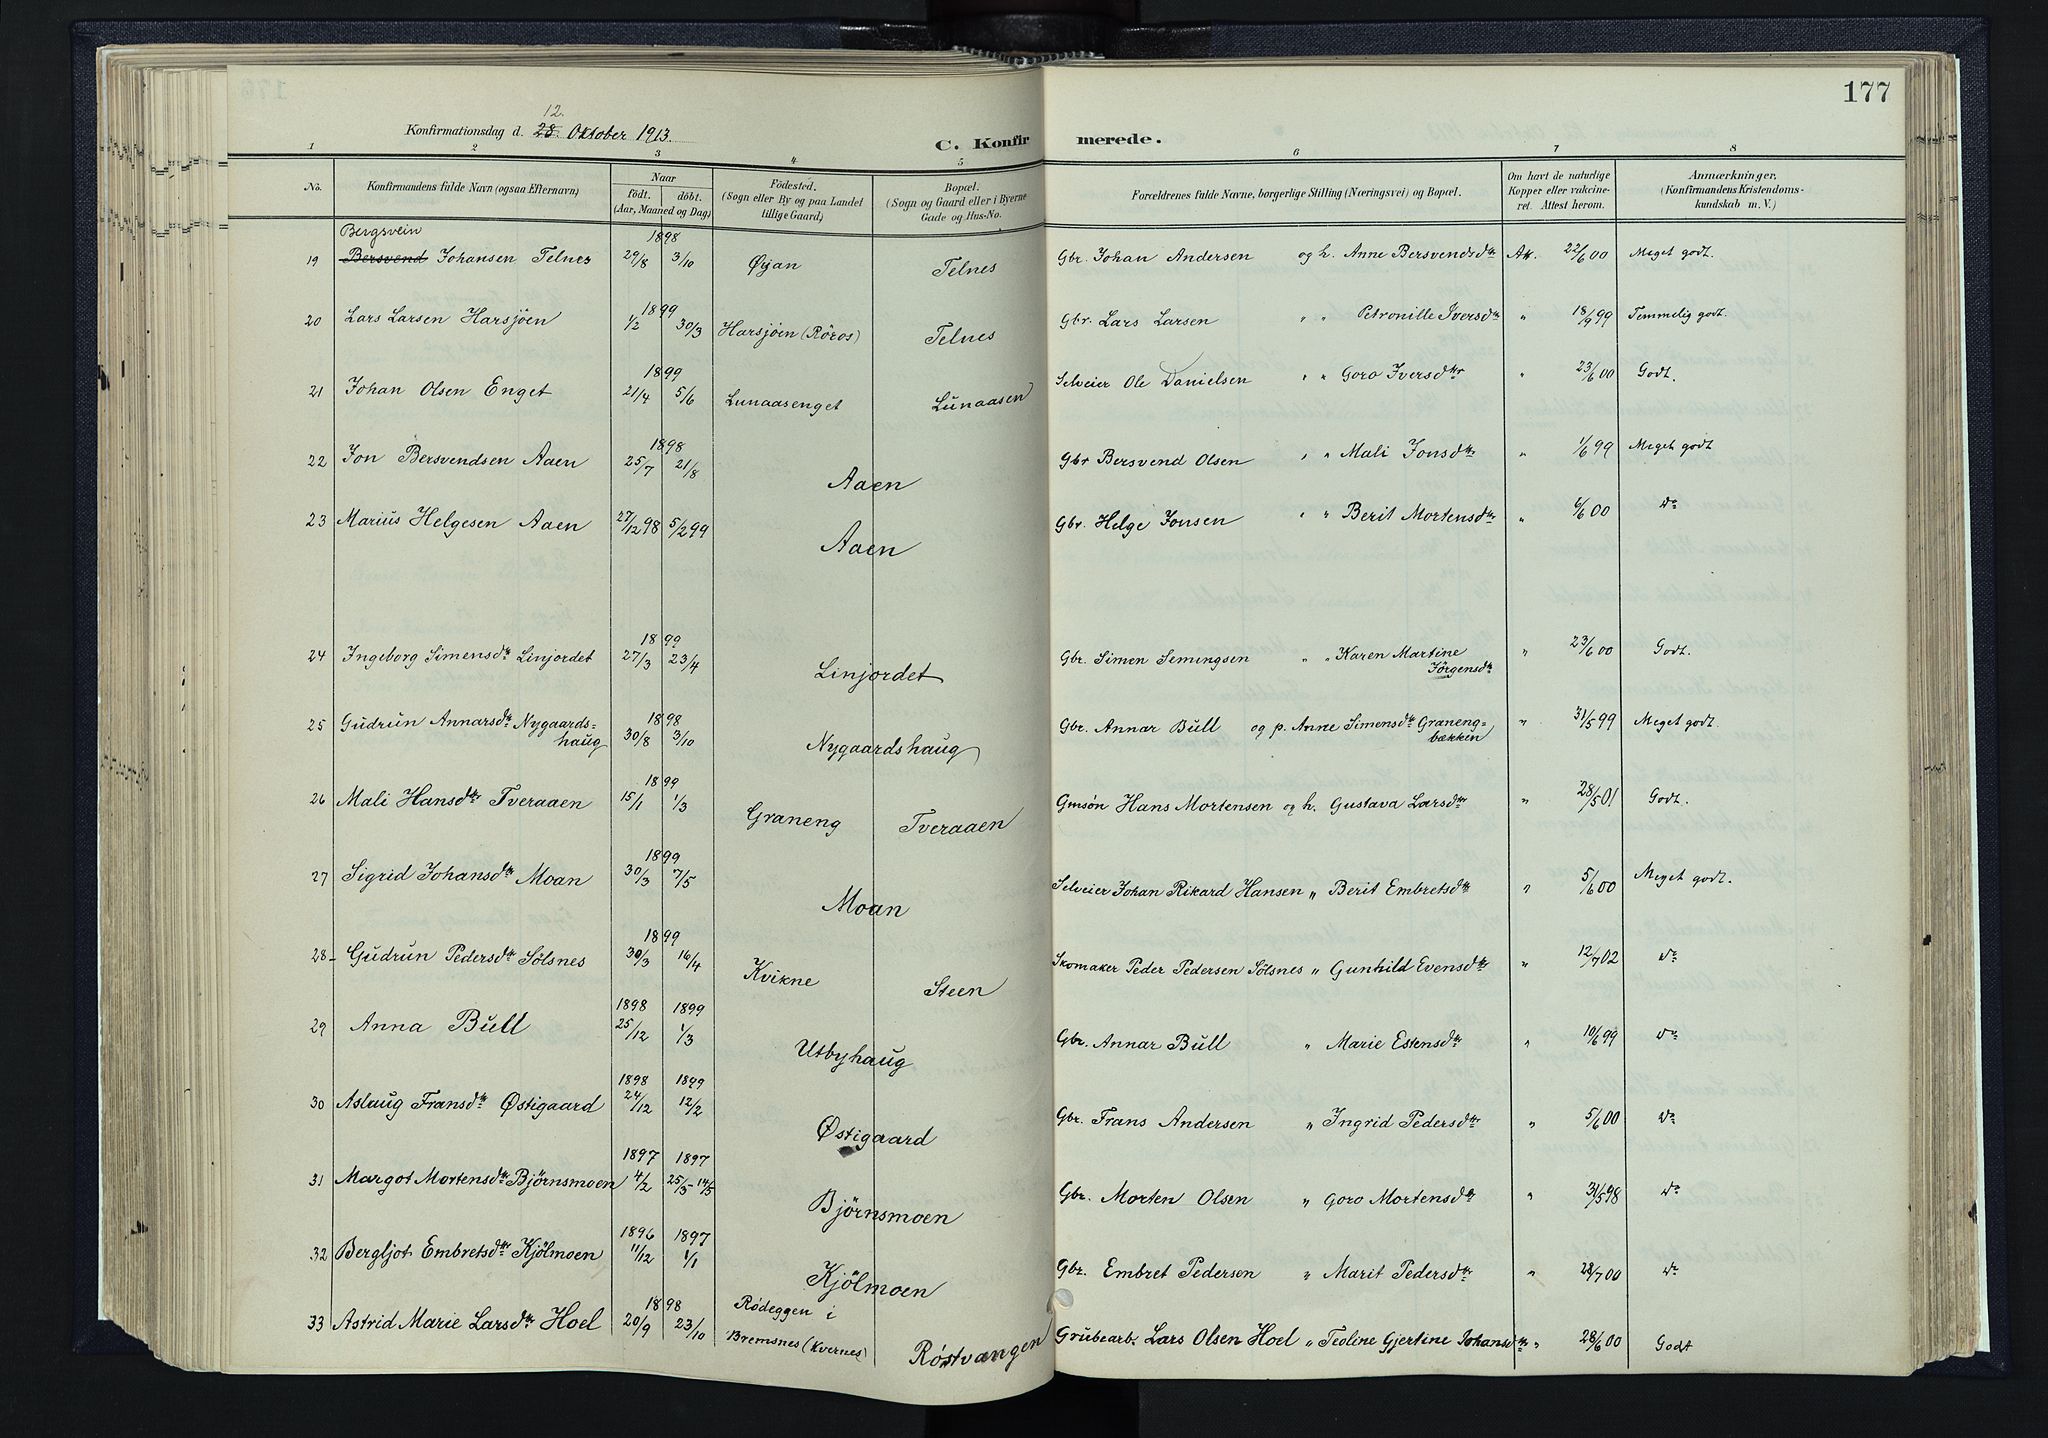 177
12.
Konfirmationsdag d. 28. Oktober 1913.
C. Konfirmerede.
1 2 3 4 5 6 7 8
No.
Konfirmandens fulde Navn (ogsaa Efternavn)
Naar
födt. döbt.
(Aar, Maaned og Dag)
Födested.
(Sogn eller By og paa Landet
tillige Gaard)
Bopæl.
(Sogn og Gaard eller i Byerne
Gade og Hus-No.
Forældrenes fulde Navne, borgerlige Stilling (Næringsvei) og Bopæl.
Om havt de naturlige
Kopper eller vakcine-
ret. Attest herom.
Anmærkninger,
(Konfirmandens Kristendoms-
kundskab m. V.)
Bergsvein 1898
19 Bersvend Johansen Telnes 29/8 3/10 Øyan Telnes Gbr. Johan Andersen og h. Anne Bersvendsdtr At. 22/6 00 Meget godt.
1899
20 Lars Larsen Harsjöen 1/2 30/3 Harsjöen (Röros) Telnes Gbr. Lars Larsen " " Petronille Iversdtr " 18/9 99 Temmelig godt.
1899
21 Johan Olsen Enget 21/4 5/6 Lunaasenget Lunaasen Selveier Ole Danielsen " " Goro Iversdtr " 23/6 00 Godt.
1898
22 Jon Bersvendsen Aaen 25/7 21/8 Aaen Gbr Bersvend Olsen " " Mali Jonsdtr " 1/6 99 Meget godt
23 Marius Helgesen Aaen 27/12 98 5/2 99 Aaen Gbr. Helge Jonsen " " Berit Mortensdtr " 6/6 00 do
1899
24 Ingeborg Simensdtr Linjordet 27/3 23/4 Linjordet Gbr. Simen Semingsen " " Karen Martine " 23/6 00 Godt.
Jörgensdtr
1898
25 Gudrun Annarsdtr Nygaards- 30/8 3/10 Nygaardshaug Gbr. Annar Bull og p. Anne Simensdtr Graneng- " 31/5 99 Meget godt.
haug bækken
1899
26 Mali Hansdtr Tveraaen 15/1 1/3 Graneng Tveraaen Gmsön Hans Mortensen og h. Gustava Larsdtr " 28/5 01 Godt.
1899
27 Sigrid Johansdtr Moan 30/3 7/5 Moan Selveier Johan Rikard Hansen " Berit Embretsdtr " 5/6 00 Meget godt.
1899
28 Gudrun Pedersdtr Sölsnes 30/3 16/4 Kvikne Steen Skomaker Peder Pedersen Sölsnes " Gunhild Evensdtr " 12/7 02 do
1898 1899
29 Anna Bull 25/12 1/3 Utbyhaug Gbr. Annar Bull " Marie Estensdtr " 10/6 99 do
1898 1899
30 Aslaug Fransdtr Østigaard 24/12 12/2 Østigaard Gbr. Frans Andersen " Ingrid Pedersdtr " 5/6 00 do
1897 1897
31 Margot Mortensdtr Bjørnsmoen 4/2 25/3-14/5 Bjørnsmoen Gbr. Morten Olsen " Goro Mortensdtr " 31/5 98 do
1896 1897
32 Bergljot Embretsdtr Kjölmoen 11/12 1/1 Kjölmoen Gbr. Embret Pedersen " Marit Pedersdtr " 28/7 00 do
1898 Rødeggen i
33 Astrid Marie Larsdtr Hoel 20/9 23/10 Bremsnes (Kvernes) Røstvangen Grubearb. Lars Olsen Hoel " Teoline Gjertine Johansdtr " 28/6 00 Godt